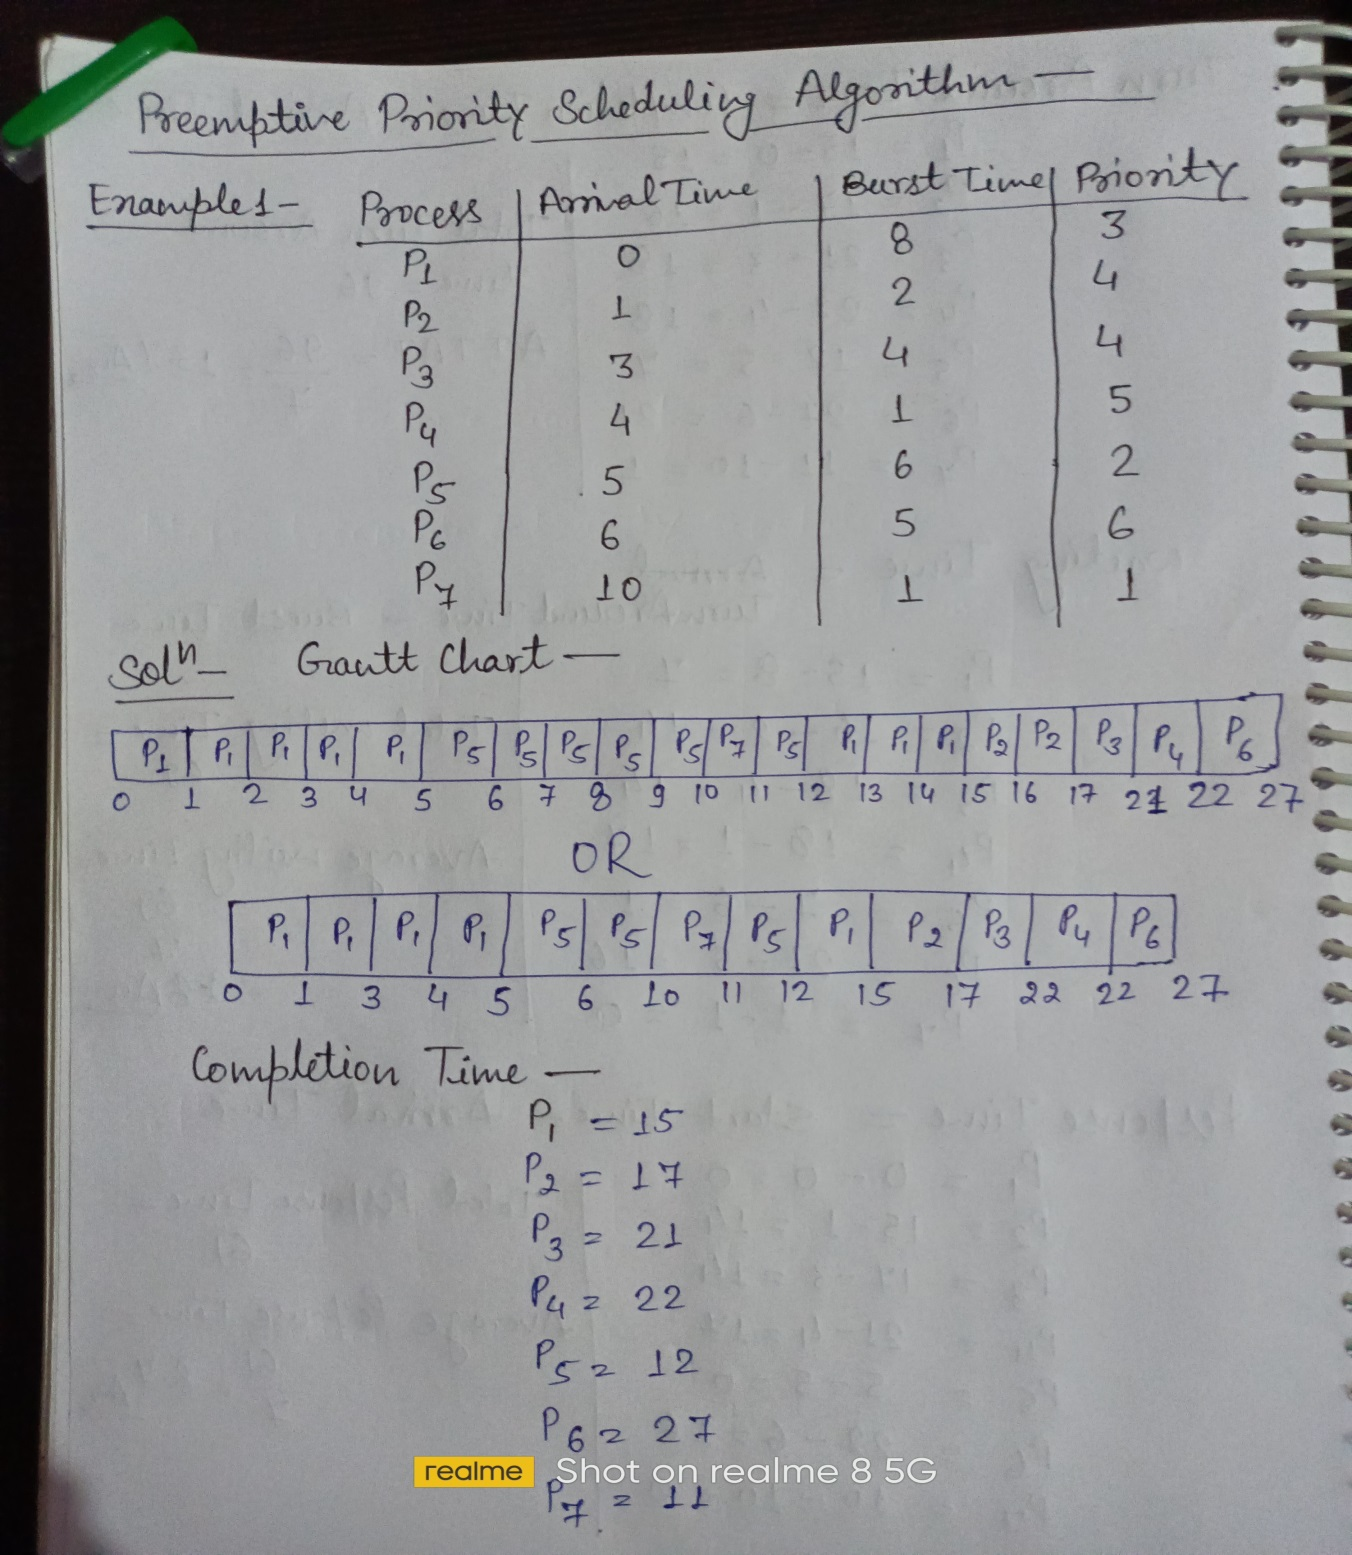 Preemptive Priority Scheduling Algorithm —
Example 1 – Process Arrival Time Burst Time Priority
P1 0 8 3
P2 1 2 4
P3 3 4 4
P4 4 1 5
P5 5 6 2
P6 6 5 6
P7 10 1 1
Solⁿ – Gantt Chart —
P1 P1 P1 P1 P1 P5 P5 P5 P5 P5 P7 P5 P1 P1 P1 P2 P2 P3 P4 P6
0 1 2 3 4 5 6 7 8 9 10 11 12 13 14 15 16 17 21 22 27
OR
P1 P1 P1 P1 P5 P5 P7 P5 P1 P2 P3 P4 P6
0 1 3 4 5 6 10 11 12 15 17 22 22 27
Completion Time —
P1 = 15
P2 = 17
P3 = 21
P4 = 22
P5 = 12
P6 = 27
realme Shot on realme 8 5G
P7 = 11